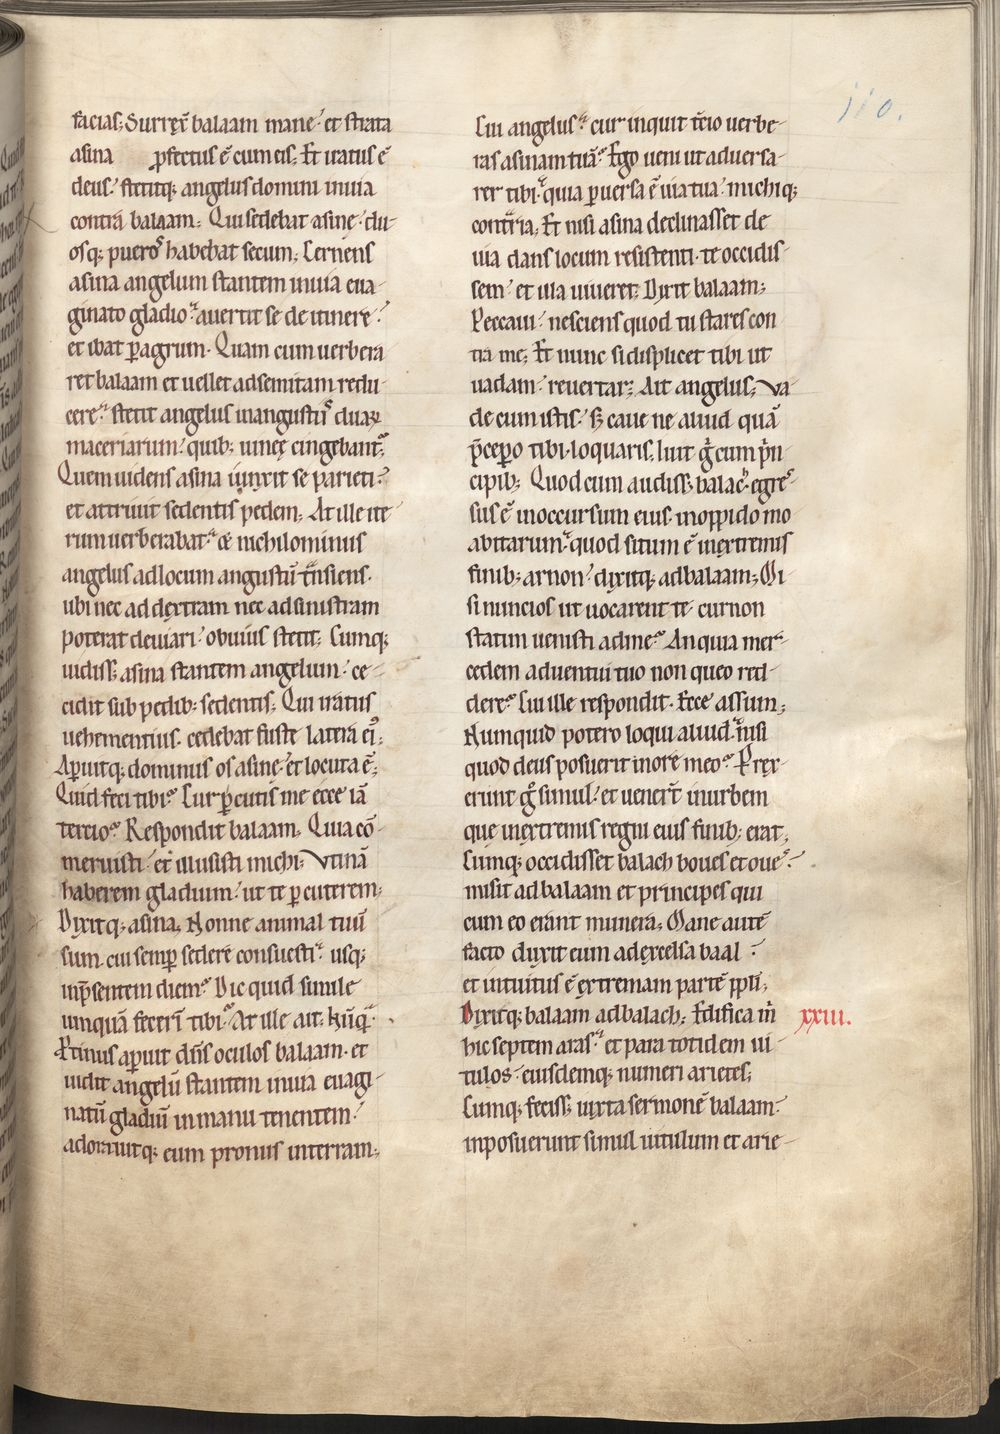 110.
facias; Surrex̄ balaam mane. et strata
asina ꝓfectus ē cum eis; Et iratus ē
deus. stetitq; angelus domini in uia
contra balaam; Qui sedebat asine. du-
osq; pueros habebat secum; Cernens
asina angelum stantem in uia eua-
ginato gladio. auertit se de itinere.
et ibat ꝑ agrum. Quam cum uerbera
ret balaam et uellet ad semitam redu-
cere. stetit angelus in angustiis duaꝝ
maceriarum. quib; uineę cingebant᷑;
Quem uidens asina iunxit se parieti.
et attriuit sedentis pedem; At ille ite
rum uerberabat. & nichilominus
angelus ad locum angustū t̄nsiens.
ubi nec ad dextram nec ad sinistram
poterat deuiari. obuius stetit; Cumq;
uidiss; asina stantem angelum. ce-
cidit sub pedib; sedentis; Qui iratus
uehementius. cedebat fuste latera ei᷒;
Aꝑuitq; dominus os asine. et locuta ē;
Quid feci tibi. Cur ꝑcutis me ecce iā
tercio. Respondit balaam; Quia cō-
meruisti. et illusisti michi; Vtinā
haberem gladium. ut te ꝑcuterem;
Dixitq; asina; Nonne animal tuū
sum. cui semꝑ sedere consuesti. usq;
in p̄sentem diem. Dic quid simile
unquā fecerī tibi. At ille ait; Nūq̄.
Ꝓtinus aꝑuit dn̄s oculos balaam. et
uidit angelū stantem in uia euagi-
natū gladiū in manu tenentem.
adorauitq; eum pronus in terram;
Cui angelus. cur inquit t̄cio uerbe-
ras asinam tuā. Ego ueni ut aduersa-
rer tibi. quia ꝑuersa ē uia tua. michiq;
cont̄ria; Et nisi asina declinasset de
uia dans locum resistenti. te occidis-
sem. et illa uiueret; Dixit balaam;
Peccaui. nesciens quod tu stares con
tra me; Et nunc si displicet tibi ut
uadam. reuertar; Ait angelus; Va-
de cum istis. s; caue ne aliud quā
p̄cepero tibi loquaris; Iuit g̊ cum p̄n
cipib; Quod cum audiss; balac. egres-
sus ē in occursum eius. in oppido mo
abitarum. quod situm ē in extremis
finib; arnon. dixitq; ad balaam; Mi-
si nuncios ut uocarent te. cur non
statim uenisti ad me. An quia mer-
cedem aduentui tuo non queo red-
dere. Cui ille respondit. Ecce assum;
Numquid potero loqui aliud. nisi
quod deus posuerit in ore meo. Prex-
erunt g̊ simul. et uener̄t in urbem
que in extremis regni eius finib; erat;
Cumq; occidisset balach boues et oues.
misit ad balaam et principes qui
cum eo erant munera; Mane autē
facto duxit eum ad excelsa baal.
et intuitus ē extremam partē ppli;
Dixitq; balaam ad balach; Edifica m̄
xxiii.
hic septem aras. et para totidem ui-
tulos. eiusdemq; numeri arietes;
Cumq; feciss; iuxta sermonē balaam.
inposuerunt simul uitulum et arie-